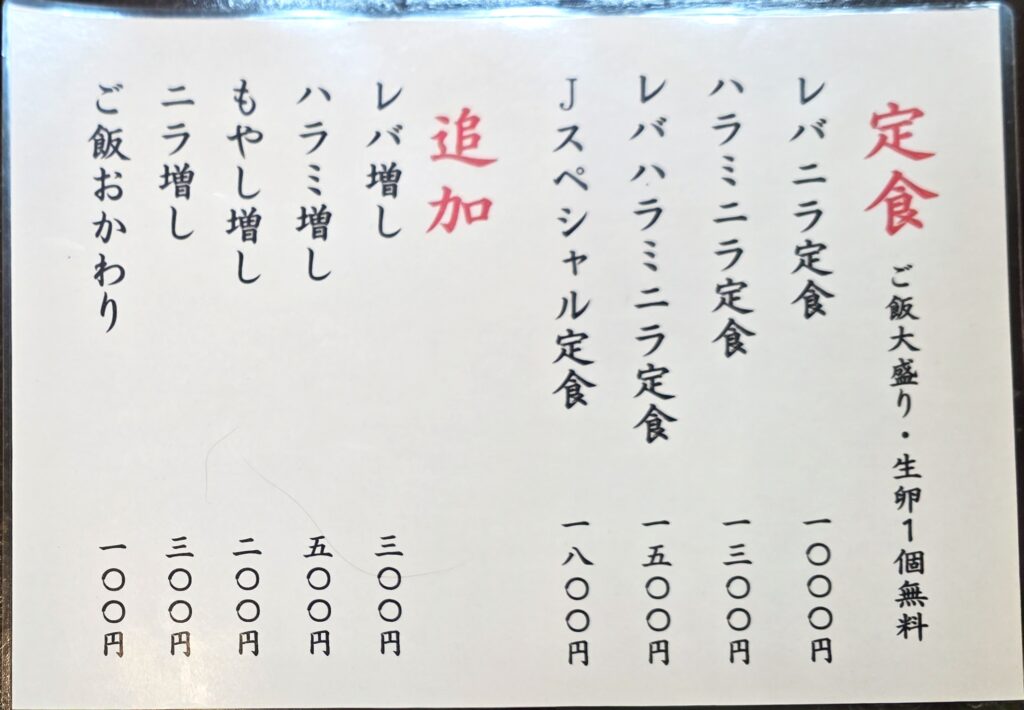 定食 ご飯大盛り・生卵1個無料
レバニラ定食 一〇〇〇円
ハラミニラ定食 一三〇〇円
レバハラミニラ定食 一五〇〇円
Jスペシャル定食 一八〇〇円
追加
レバ増し 三〇〇円
ハラミ増し 五〇〇円
もやし増し 二〇〇円
ニラ増し 三〇〇円
ご飯おかわり 一〇〇円